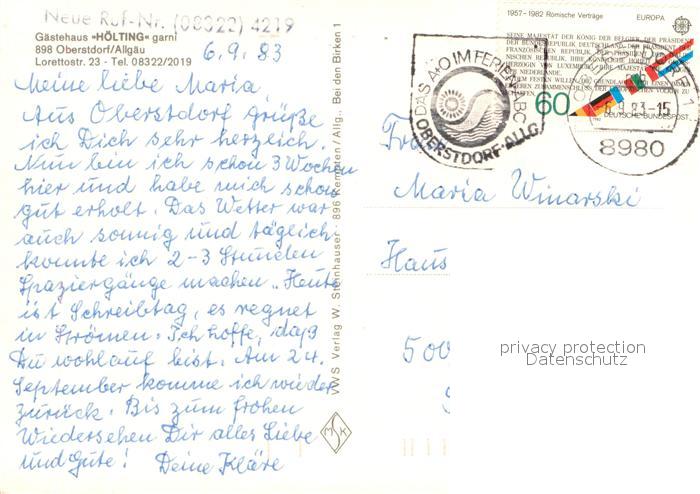 Neue Ruf-Nr. (08322) 4219
Gästehaus »HÖLTING« garni
898 Oberstdorf/Allgäu
Lorettostr. 23 - Tel. 08322/2019
6.9.83
Meine liebe Maria,
Aus Oberstdorf grüße
ich Dich sehr herzlich.
Nun bin ich schon 3 Wochen
hier und habe mich schon
gut erholt. Das Wetter war
auch sonnig und täglich
konnte ich 2-3 Stunden
Spaziergänge machen. Heute
ist Schreibtag, es regnet
in Strömen. Ich hoffe, daß
Du wohlauf bist. Am 24.
September komme ich wieder
zurück. Bis zum frohen
Wiedersehen Dir alles Liebe
und Gute! Deine Kläre
VWS Verlag W. Steinhauser · 896 Kempten / Allg., Bei den Birken 1
MSK
DAS A+O IM FERIEN-ABC
OBERSTDORF-ALLG
1957-1982 Römische Verträge EUROPA
SEINE MAJESTÄT DER KÖNIG DER BELGIER, DER PRÄSIDENT
DER BUNDESREPUBLIK DEUTSCHLAND, DER PRÄSIDENT
FRANZÖSISCHEN REPUBLIK, DER PRÄSIDENT
NISCHEN REPUBLIK, IHRE KÖNIGLICHE HOHEIT
HERZOGIN VON LUXEMBURG, IHRE MAJESTÄT
DER NIEDERLANDE
60
DEUTSCHE BUNDESPOST
83-15
8980
Maria Winarski
Haus
500
privacy protection
Datenschutz